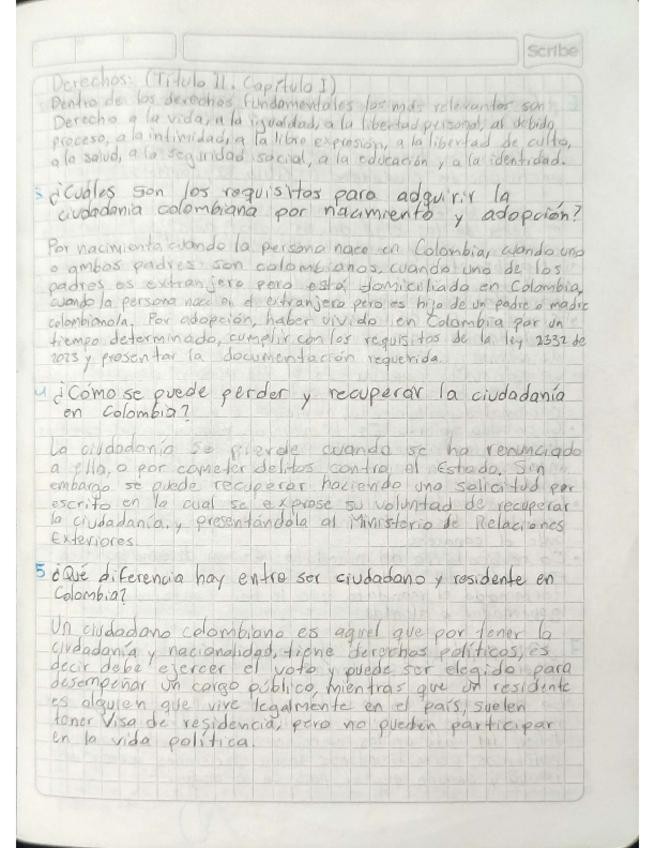 Scribe
Derechos: (Título II. Capítulo I)
Dentro de los derechos fundamentales los más relevantes son
Derecho a la vida, a la igualdad, a la libertad personal, al debido
proceso, a la intimidad, a la libre expresión, a la libertad de culto,
a la salud, a la seguridad social, a la educación y a la identidad.
3 ¿Cuáles son los requisitos para adquirir la
ciudadania colombiana por nacimiento y adopción?
Por nacimiento cuando la persona nace en Colombia, cuando uno
o ambos padres son colombianos, cuando uno de los
padres es extranjero pero está domiciliado en Colombia,
cuando la persona nace en el extranjero pero es hijo de un padre o madre
colombiano/a. Por adopción, haber vivido en Colombia por un
tiempo determinado, cumplir con los requisitos de la ley 2332 de
2023 y presentar la documentación requerida.
4 ¿Cómo se puede perder y recuperar la ciudadanía
en Colombia?
La ciudadanía se pierde cuando se ha renunciado
a ella, o por cometer delitos contra el Estado. Sin
embargo se puede recuperar haciendo una solicitud por
escrito en la cual se exprese su voluntad de recuperar
la ciudadanía, y presentándola al Ministerio de Relaciones
Exteriores.
5 ¿Qué diferencia hay entre ser ciudadano y residente en
Colombia?
Un ciudadano colombiano es aquel que por tener la
ciudadanía y nacionalidad, tiene derechos políticos, es
decir debe ejercer el voto y puede ser elegido para
desempeñar un cargo público, mientras que un residente
es alguien que vive legalmente en el país, suelen
tener Visa de residencia, pero no pueden participar
en la vida política.